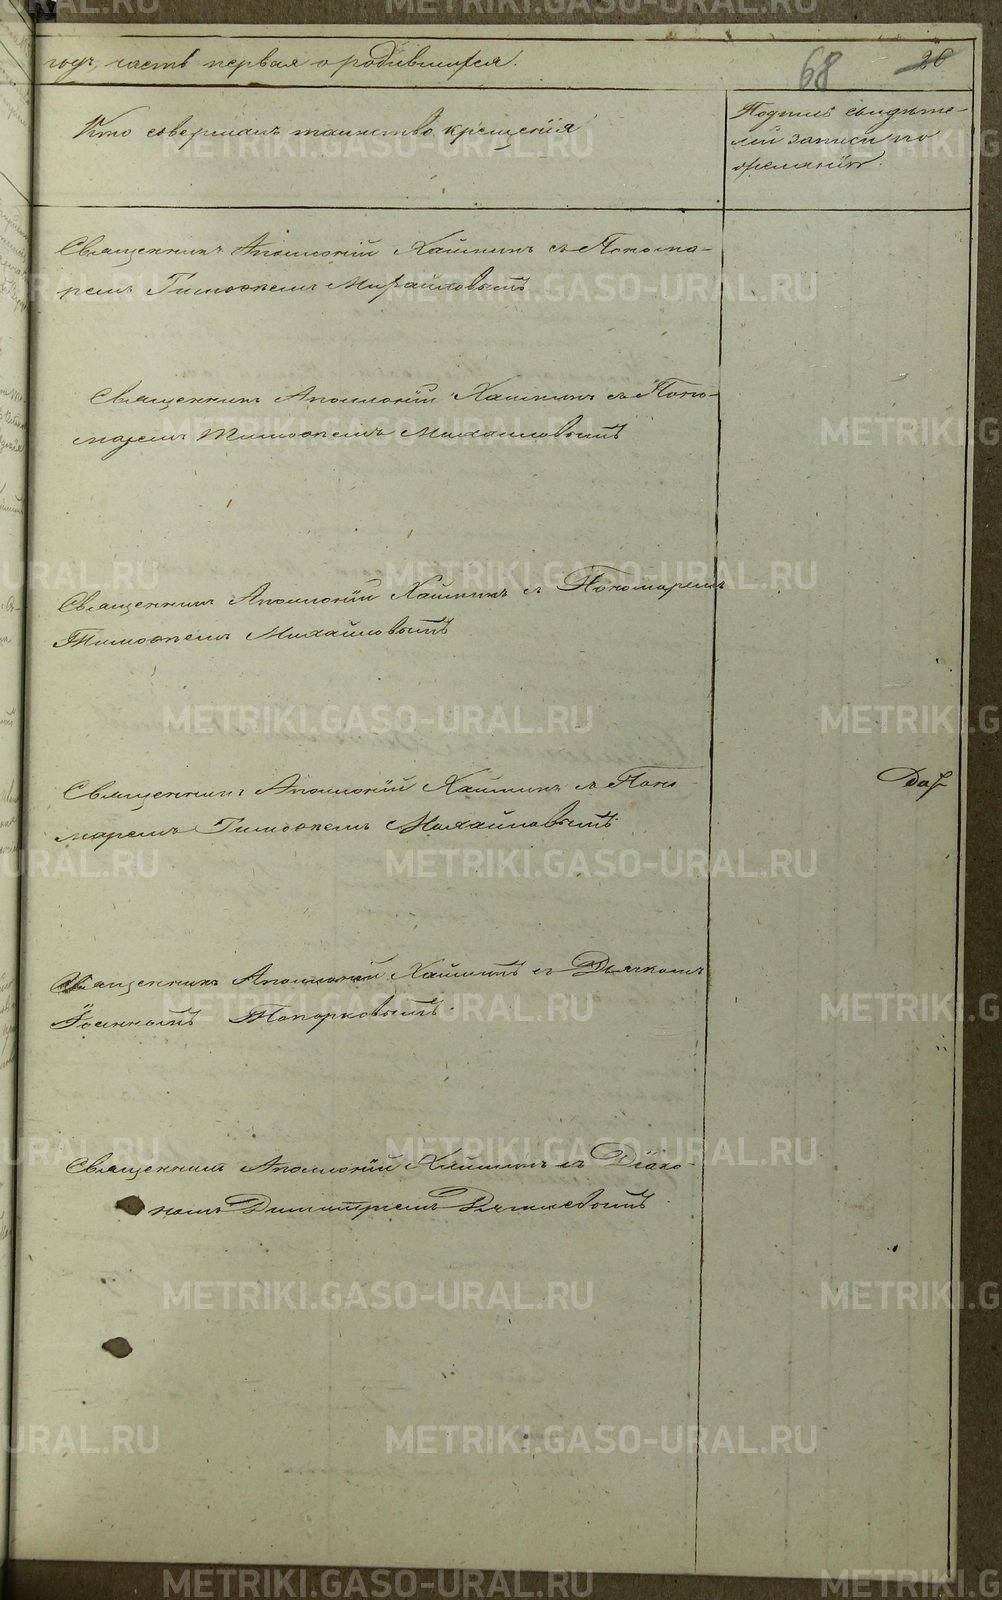 годъ, часть первая о родившихся.
68
26
Кто совершалъ таинство крещенія
Подпись свидѣте-
лей записи по
желанію.
Священникъ Аполлоній Хайминъ съ Понома-
ремъ Тимоѳеемъ Михайловымъ
Священникъ Аполлоній Хайминъ съ Поно-
маремъ Тимоѳеемъ Михайловымъ
Священникъ Аполлоній Хайминъ съ Пономаремъ
Тимоѳеемъ Михайловымъ
Священникъ Аполлоній Хайминъ съ Поно-
маремъ Тимоѳеемъ Михайловымъ
Священникъ Аполлоній Хайминъ съ Дьячкомъ
Іоанномъ Топорковымъ.
Священникъ Аполлоній Хайминъ съ Діако-
номъ Димитріемъ
METRIKI.GASO-URAL.RU